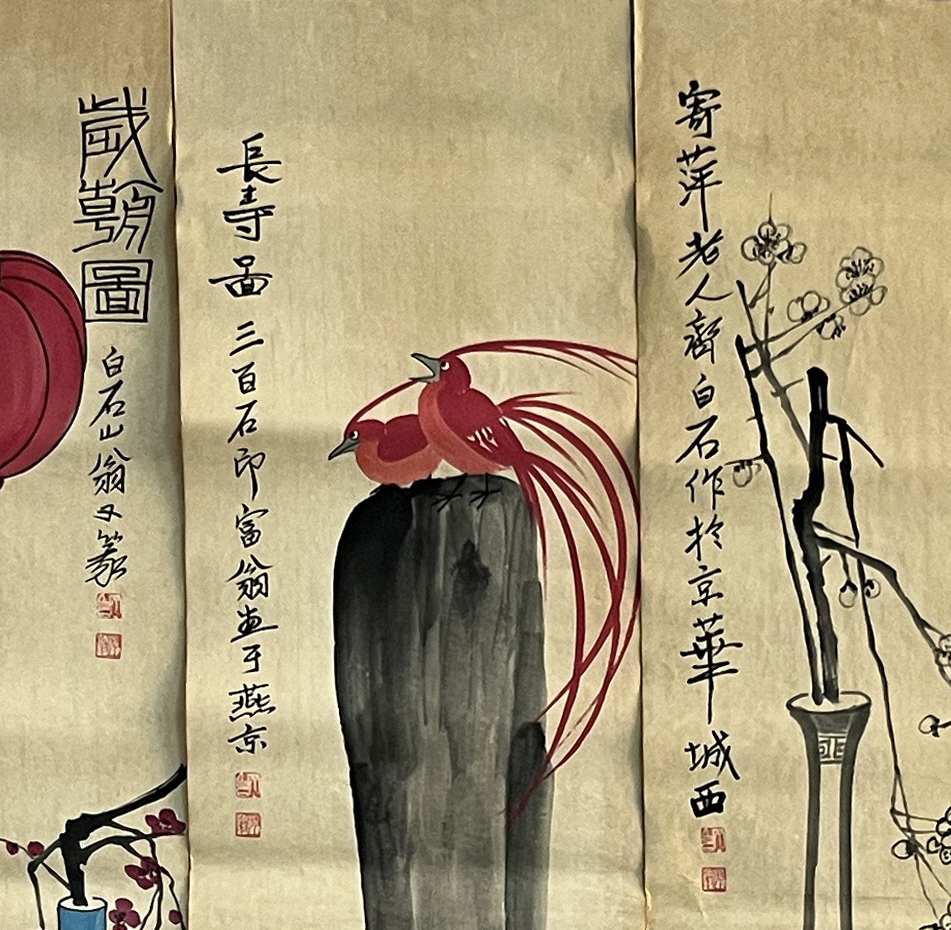 寄萍老人齊白石作於京華城西
長寿圖 三百石印富翁畫于燕京
歲朝圖
白石山翁又篆